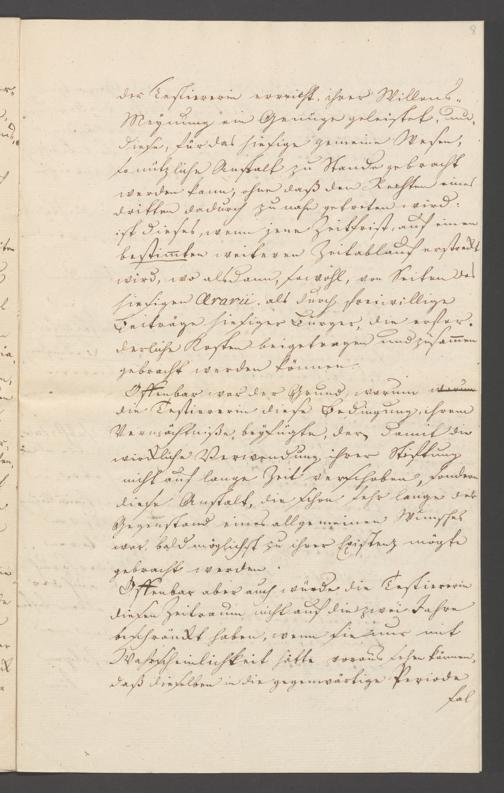 8
der Testiererin erreicht, ihrer Willens-
Meynung ein Genüge geleistet, und
diese, für das hiesige gemeine Wesen,
so nützliche Anstalt zu Stande gebracht
werden kann, ohne daß den Rechten eines
dritten dadurch zu nahe getreten wird:
ist dieses, wenn jene Zeitfrist, auf einen
bestimmten weiteren Zeitablauf erstreckt
wird, wo alsdann, sowohl, von Seiten des
hiesigen Ærarii, als durch freiwillige
Beiträge hiesiger Bürger, die erfor-
derliche Kosten beigetragen und zusammen
gebracht werden können.
Offenbar war der Grund, warum warum
die Testiererin diese Bedingung, ihrem
Vermächtniße, beyfügte, der, damit die
wirkliche Verwendung ihrer Stiftung
nicht auf lange Zeit verschoben, sondern
diese Anstalt, die schon sehr lange der
Gegenstand eines allgemeinen Wunsches
war, bald möglichst zu ihrer Existenz mögte
gebracht werden.
Offenbar aber auch würde die Testiererin
diesen Zeitraum nicht auf die zwei Jahre
beschränkt haben, wenn sie nur mit
Wahrscheinlichkeit hätte voraus sehen können,
daß dieselben in die gegenwärtige Periode
fal